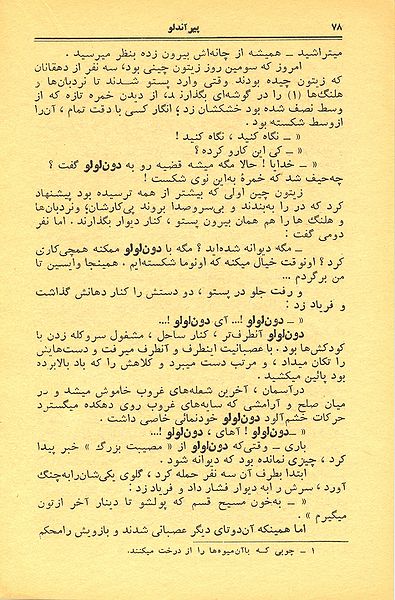 ۷۸
پیراندلو
میتراشید ــ همیشه از چانه‌اش بیرون زده بنظر میرسید .
امروز که سومین روز زیتون چینی بود، سه نفر از دهقانان
که زیتون چیده بودند وقتی وارد پستو شدند تا نردبان‌ها و
هلنگ‌ها (۱) را در گوشه‌ای بگذارند، از دیدن خمره تازه که از
وسط نصف شده بود خشکشان زد؛ انگار کسی با دقت تمام ، آن‌را
ازوسط شکسته بود .
« ــ نگاه کنید ، نگاه کنید !
« ــ کی این کارو کرده ؟
« ــ خدایا ! حالا مگه میشه قضیه رو به دون‌لولو گفت ؟
چه‌حیف شد که خمرهٔ به‌این نوی شکست !
زیتون چین اولی که بیشتر از همه ترسیده بود پیشنهاد
کرد که در را به‌بندند و بی‌سروصدا بروند پی‌کارشان؛ ونردبان‌ها
و هلنگ ها را هم همان بیرون پستو ، کنار دیوار بگذارند . اما نفر
دومی گفت :
ــ مگه دیوانه شده‌اید ؟ مگه با دون‌لولو ممکنه همچی‌کاری
کرد ؟ اونوقت خیال میکنه که اونوما شکسته‌ایم . همینجا وایسین تا
من برگردم ...
و رفت جلو در پستو ، دو دستش را کنار دهانش گذاشت
و فریاد زد :
« ــ دون‌لولو !... آی دون‌لولو !...
دون‌لولو آنطرف‌تر ، کنار ساحل ، مشغول سروکله زدن با
کودکش‌ها بود . با عصبانیت اینطرف و آنطرف میرفت و دست‌هایش
را تکان میداد ، و مرتب دست میبرد و کلاهش را که باد بالابرده
بود پائین میکشید .
درآسمان ، آخرین شعله‌های غروب خاموش میشد و در
میان صلح و آرامشی که سایه‌های غروب روی دهکده میگسترد
حرکات خشم‌آلود دون‌لولو خودنمائی خاصی داشت .
« ــدون‌لولو ! آهای ، دون‌لولو !...
باری ــ وقتی‌که دون‌لولو از « مصیبت بزرگ » خبر پیدا
کرد ، چیزی نمانده بود که دیوانه شود .
ابتدا بطرف آن سه نفر حمله کرد ، گلوی یکی‌شان‌رابه‌چنگ
آورد ، سرش رابه دیوار فشار داد و فریاد زد :
« ــ به‌خون مسیح قسم که پولشو تا دینار آخر ازتون
میگیرم » .
اما همینکه آن‌دوتای دیگر عصبانی شدند و بازویش رامحکم
۱ ــ چوبی که باآن‌میوه‌ها را از درخت میکنند.